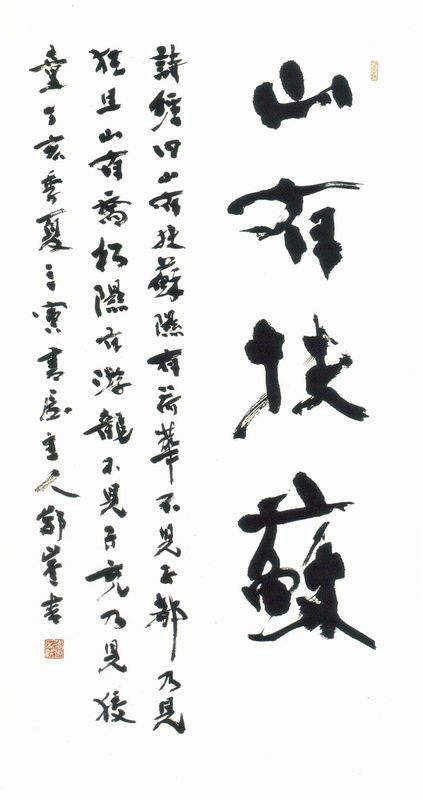 山有扶蘇
詩經曰山有扶蘇隰有荷華不見子都乃見
狂且山有喬松隰有游龍不見子充乃見狡
童丁亥季夏三寅書屋主人